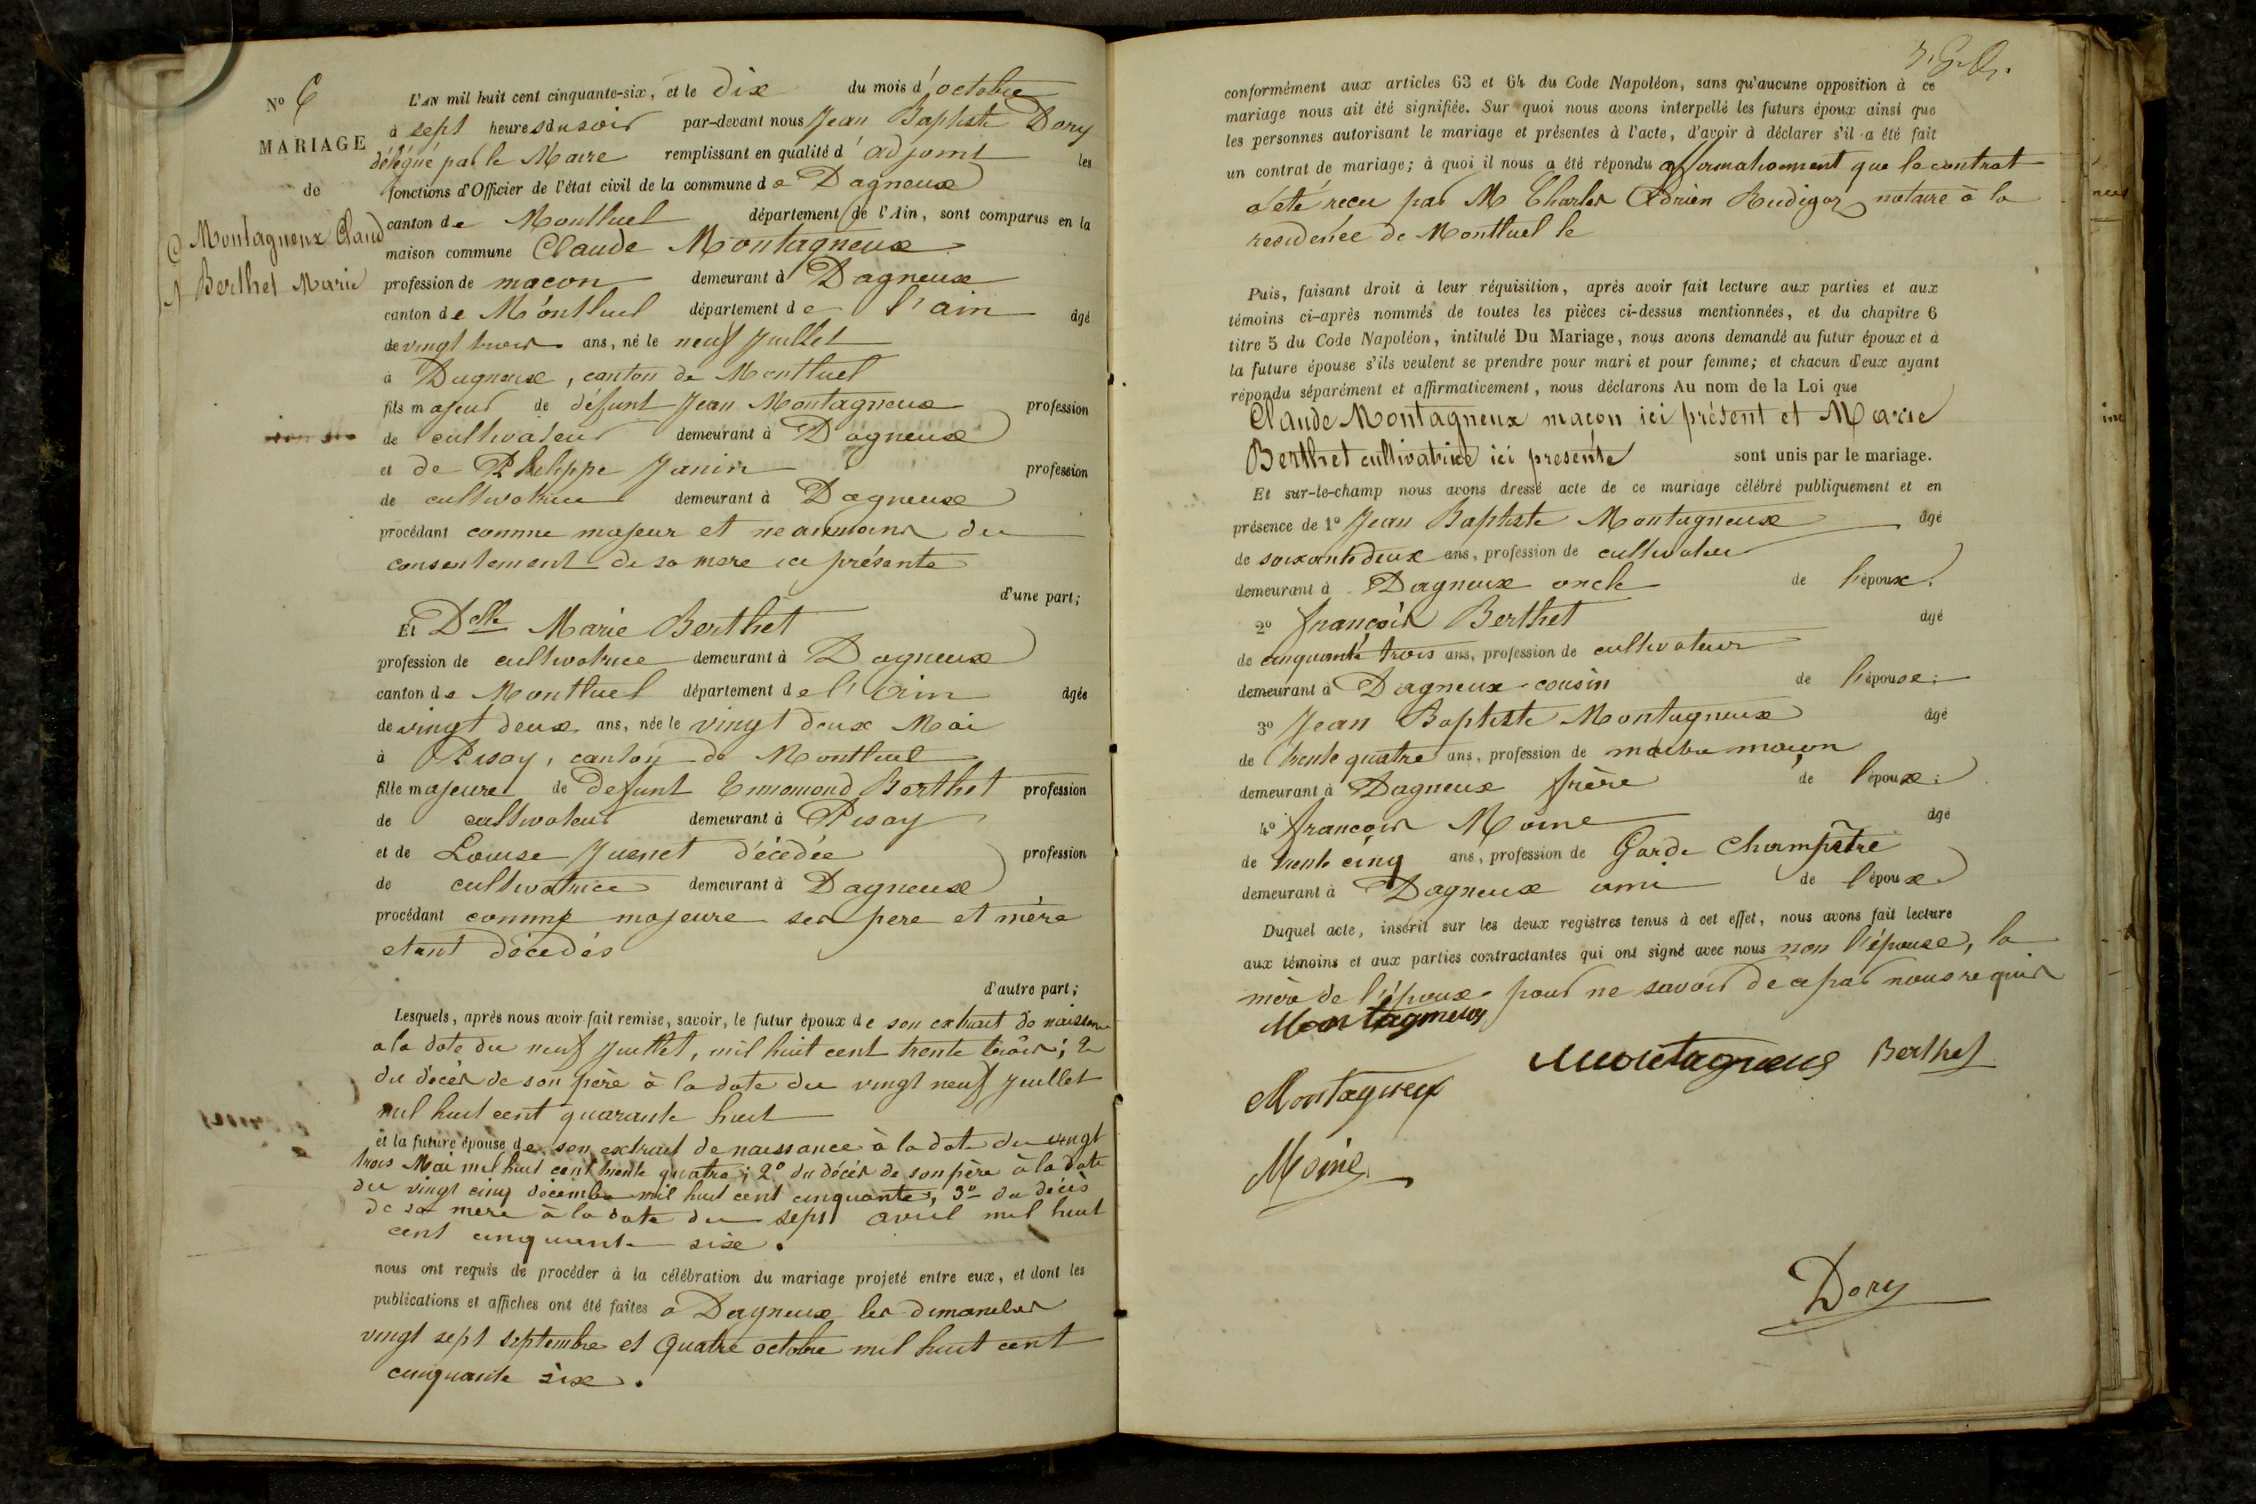 N° 6
MARIAGE
de
Montagneux Claud
&
Berthet Marie
L'AN mil huit cent cinquante-six, et le dix du mois d'octobre
à sept heures du soir par-devant nous Jean Baptiste Dory
délégué par le Maire remplissant en qualité d'adjoint les
fonctions d'Officier de l'état civil de la commune de Dagneux
canton de Montluel département de l'Ain, sont comparus en la
maison commune Claude Montagneux
profession de macon demeurant à Dagneux
canton de Montluel département de l'ain âgé
de vingt trois ans, né le neuf Juillet
à Dagneux, canton de Montluel
fils majeur de défunt Jean Montagneux profession
de cultivateur demeurant à Dagneux
et de Philippe Janin profession
de cultivatrice demeurant à Dagneux
procédant comme majeur et neanmoins du
consentement de sa mere ici présente
d'une part;
Et Dlle Marie Berthet
profession de cultivatrice demeurant à Dagneux
canton de Montluel département de l'ain âgée
de vingt deux ans, née le vingt deux Mai
à Pisay, canton de Montluel
fille majeure de Defunt Ennemond Berthet profession
de cultivateur demeurant à Pisay
et de Louise Juenet décédée profession
de cultivatrice demeurant à Dagneux
procédant comme majeure ses pere et mère
etant décedés
d'autre part;
Lesquels, après nous avoir fait remise, savoir, le futur époux de son extrait de naissance
a la date du neuf Juillet, mil huit cent trente trois; 2
du décès de son père à la date du vingt neuf Juillet
mil huit cent quarante huit
et la future épouse de son extrait de naissance à la date du vingt
trois Mai mil huit cent trente quatre; 2° du décès de son père à la date
du vingt cinq décembre mil huit cent cinquante; 3° du décès
de sa mere à la date du sept avril mil huit
cent cinquante six.
nous ont requis de procéder à la célébration du mariage projeté entre eux, et dont les
publications et affiches ont été faites a Dagneux les dimanches
vingt sept septembre et Quatre octobre mil huit cent
cinquante six.
conformément aux articles 63 et 64 du Code Napoléon, sans qu'aucune opposition à ce
mariage nous ait été signifiée. Sur quoi nous avons interpellé les futurs époux ainsi que
les personnes autorisant le mariage et présentes à l'acte, d'avoir à déclarer s'il a été fait
un contrat de mariage; à quoi il nous a été répondu affirmativement que le contrat
a été reçu par M Charles Adrien Rudigoz notaire à la
residence de Montluel le
Puis, faisant droit à leur réquisition, après avoir fait lecture aux parties et aux
témoins ci-après nommés de toutes les pièces ci-dessus mentionnées, et du chapitre 6
titre 5 du Code Napoléon, intitulé Du Mariage, nous avons demandé au futur époux et à
la future épouse s'ils veulent se prendre pour mari et pour femme; et chacun d'eux ayant
répondu séparément et affirmativement, nous déclarons Au nom de la Loi que
Claude Montagneux maçon ici présent et Marie
Berthet cultivatrice ici presente sont unis par le mariage.
Et sur-le-champ nous avons dressé acte de ce mariage célébré publiquement et en
présence de 1° Jean Baptiste Montagneux âgé
de soixante deux ans, profession de cultivateur
demeurant à Dagneux oncle de l'époux.
2° françois Berthet âgé
de cinquante trois ans, profession de cultivateur
demeurant à Dagneux cousin de l'épouse.
3° Jean Baptiste Montagneux âgé
de trente quatre ans, profession de maitre maçon
demeurant à Dagneux frère de l'époux.
4° françois Moine âgé
de trente cinq ans, profession de Garde Champêtre
demeurant à Dagneux ami de l'époux
Duquel acte, inscrit sur les deux registres tenus à cet effet, nous avons fait lecture
aux témoins et aux parties contractantes qui ont signé avec nous non l'épouse, la
mère de l'époux pour ne savoir de ce par nous requis
Montagneux
Montagneux Berthet
Montagneux
Moine
Dory